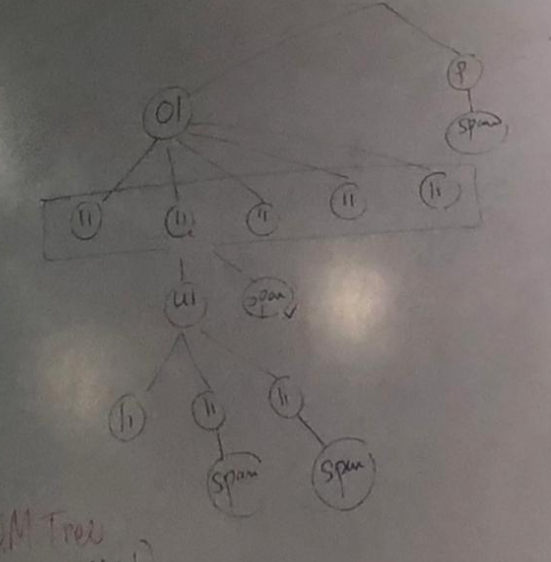 p
ol
span
li li li li li
ul span
li li li
span span
M Tree